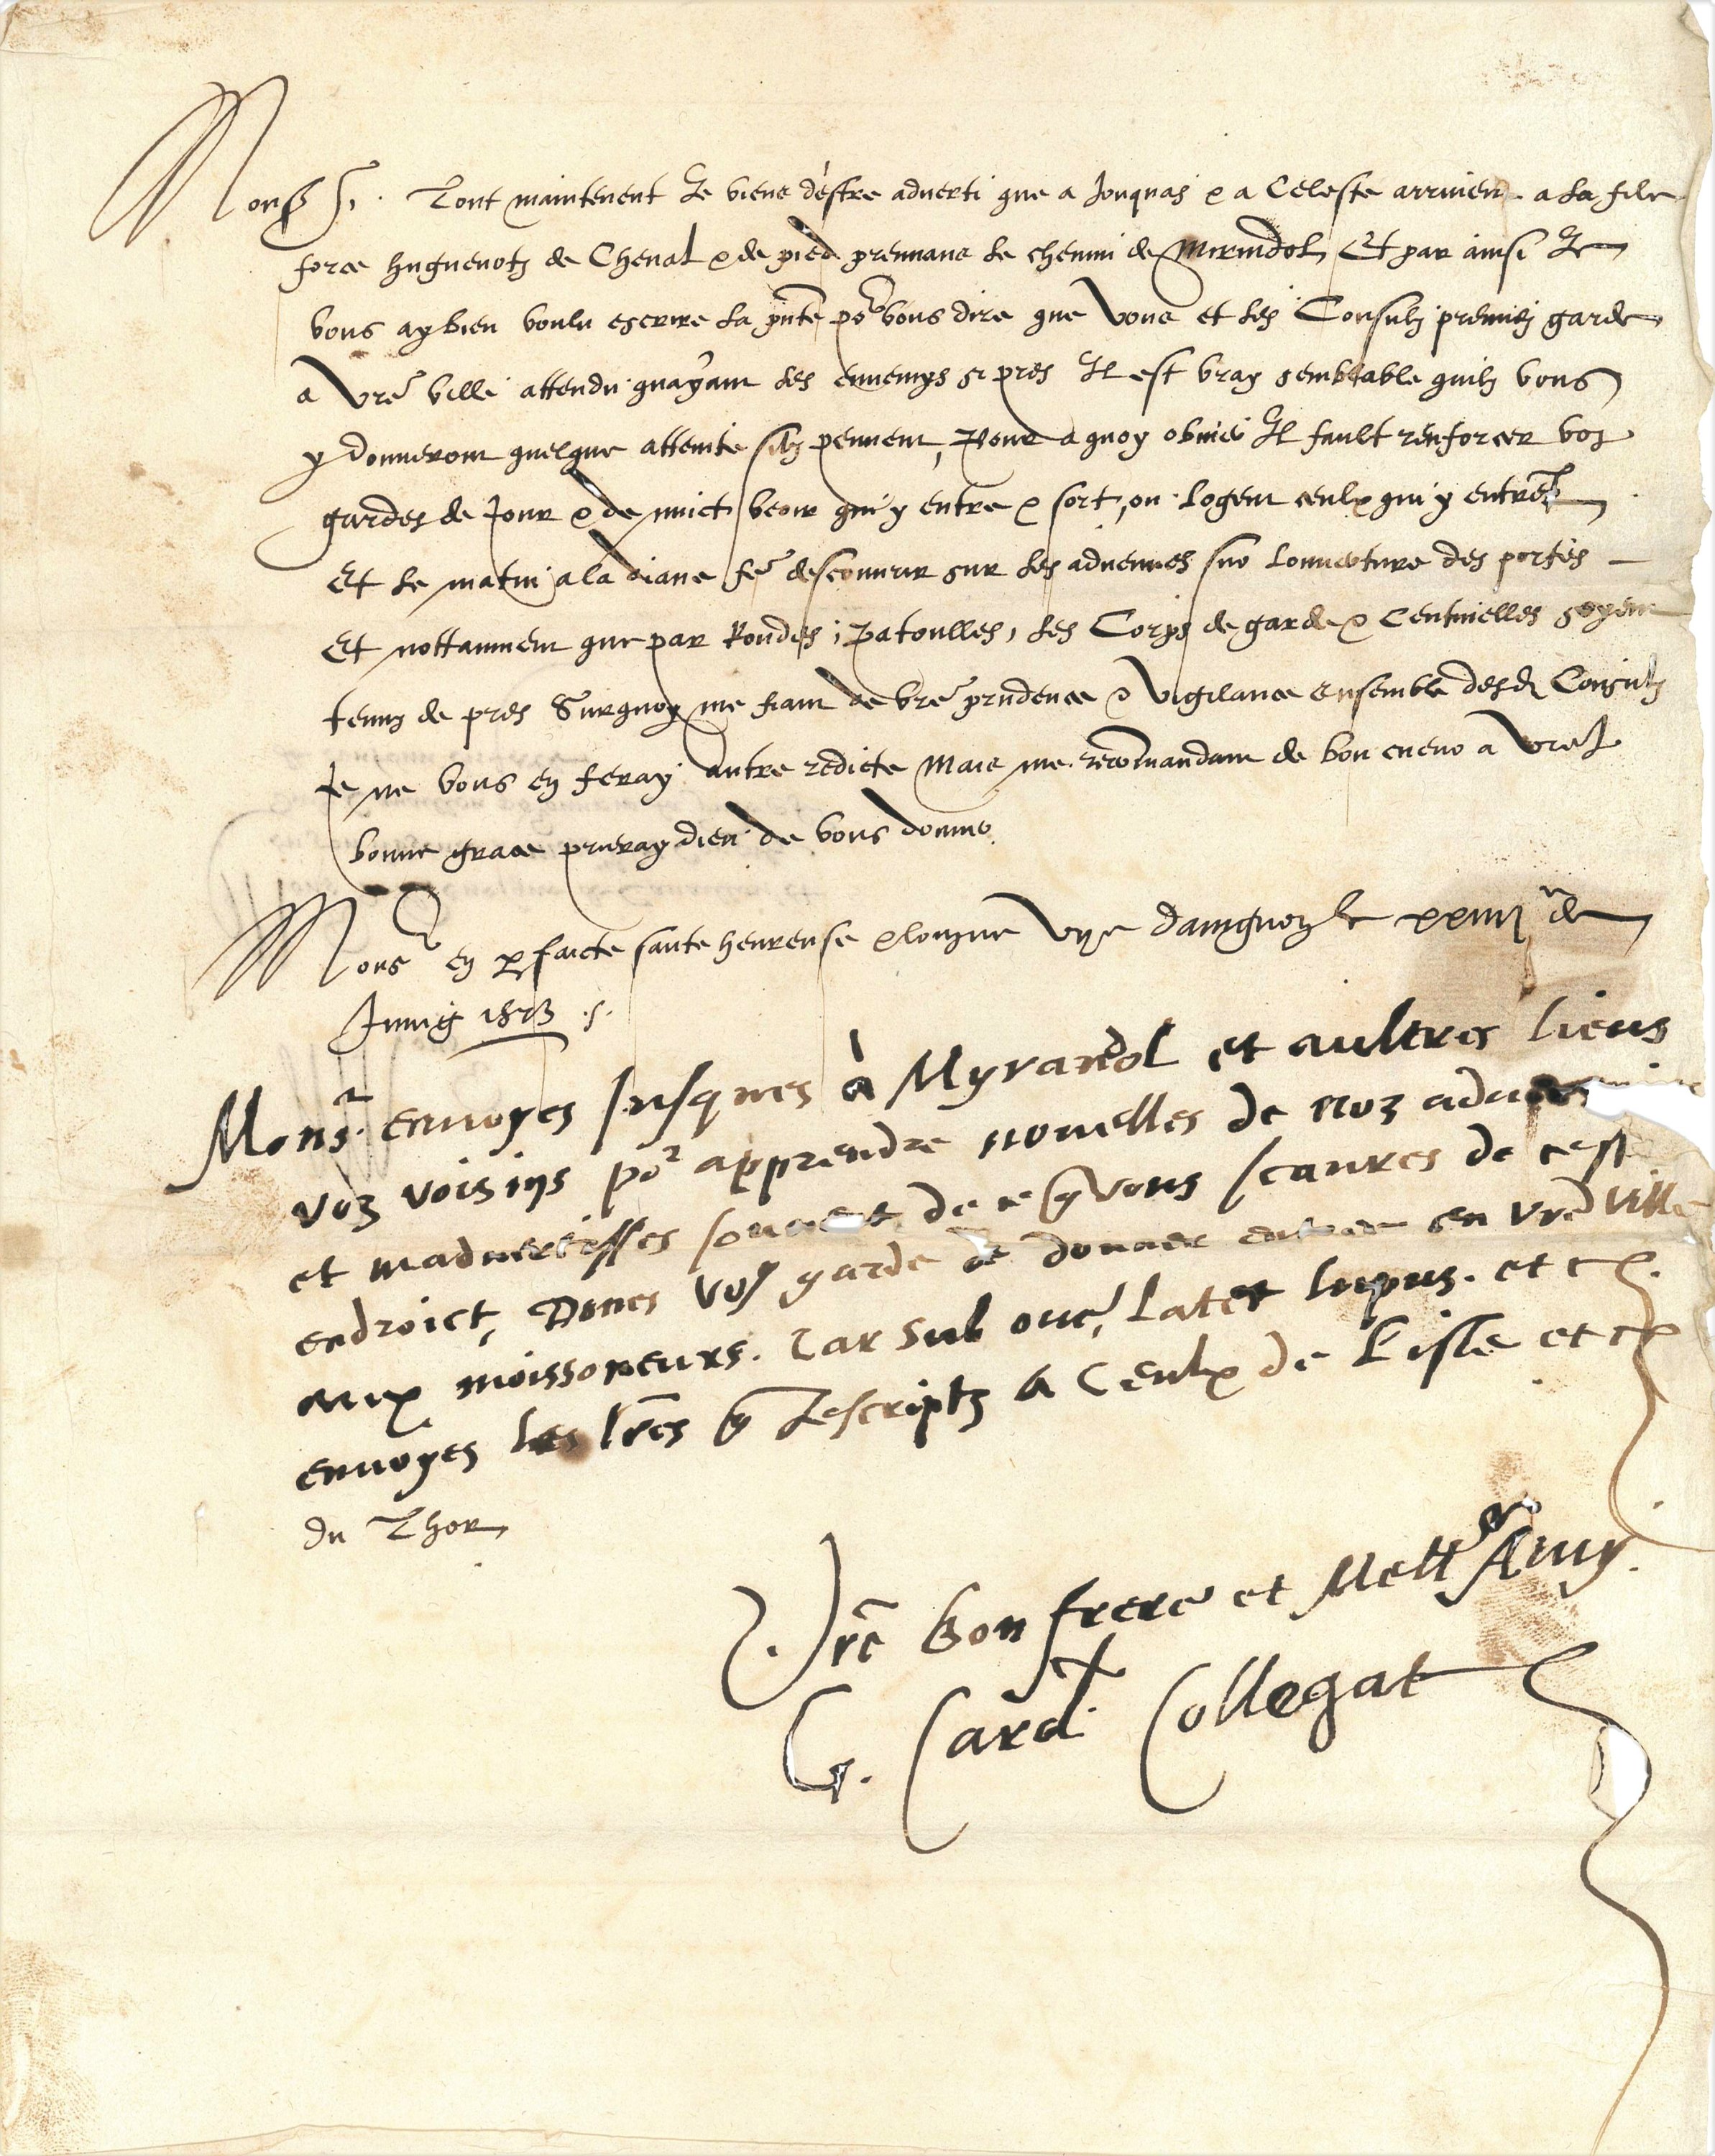 Mons.r Tout maintenent Je viens dèstre adverti que a Jonquas & a Celeste arrivien a la file
force huguenotz de Cheval & de pied prennans le chemin de Mirindol Et par ainsi Je
vous ay bien voulu escrire la pñte po.r vous dire que vous et les Consulz preniez garde
a vr̃e ville attendu quayant les ennemys si pres Il est vray semblable quilz vous
y donneront quelque atteinte silz peuvent, Pour a quoy obvier Il fault renforcer voz
gardes de Jour & de nuict veoir qui y entre & sort, ou logent ceulx qui y entrẽt
Et le matin a la diane fẽ descouvrir sur les advenues sur louverture des portes
Et nottamment que par Rondes, Patoulles, les Corps de garde & Centinelles soyent
tenuz de pres Surquoy me fiant de vr̃e prudence & vigilance ensemble desd. Consulz
Je ne vous en feray autre redicte Mais me recõmandant de bon cueur a vr̃e
bonne grace prieray dieu de vous donner
Mons.r en p̱faicte sante heureuse & longue vye davignon le xxiiij.e de
Juing 1573 .s.
Mons.r envoyes Jusques à Myrandol et aultres lieus
voz voisins po.r apprendre nouvelles de noz
et madvertisses souvent de ce q̃ vous scaures de cest
endroict, Dones vos garde de donner entree en vr̃e ville
aux moissoneurs. Car sub ove, latet lupus. et
envoyes les lr̃es q̃ Jescriptz a Ceulx de Lisle et
du Thor
Vr̃e bon frere et Mell.r Amy.
G. Card.l Collegat